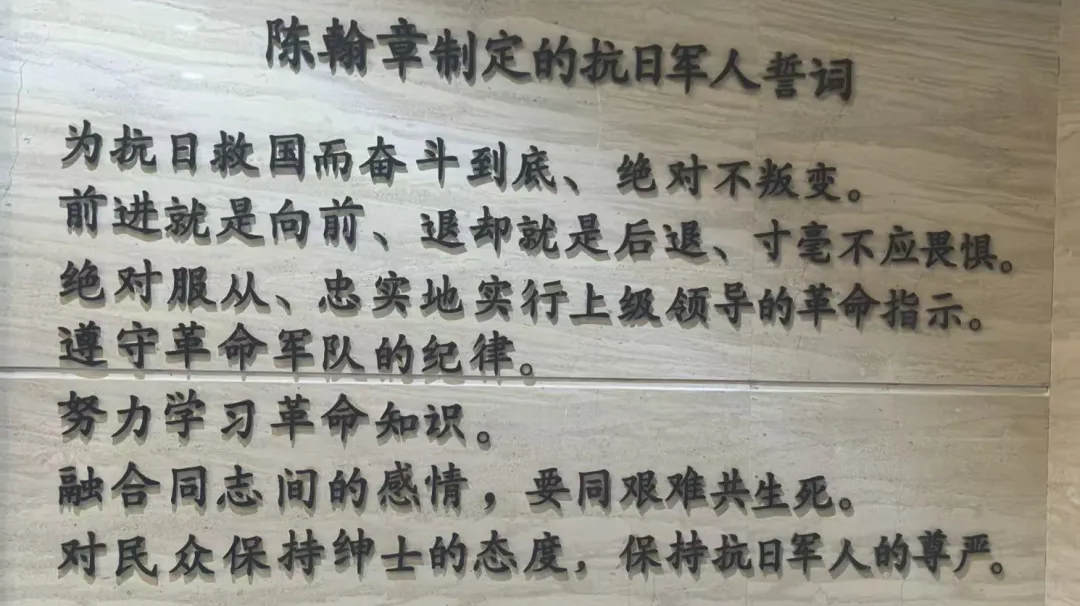 陈翰章制定的抗日军人誓词
为抗日救国而奋斗到底、绝对不叛变。
前进就是向前、退却就是后退、寸毫不应畏惧。
绝对服从、忠实地实行上级领导的革命指示。
遵守革命军队的纪律。
努力学习革命知识。
融合同志间的感情，要同艰难共生死。
对民众保持绅士的态度，保持抗日军人的尊严。